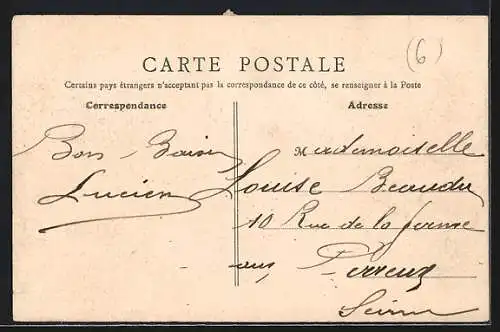 (6)
CARTE POSTALE
Certains pays étrangers n'acceptant pas la correspondance de ce côté, se renseigner à la Poste
Correspondance
Bons Baisers
Lucien
Adresse
Mademoiselle
Louise
10 Rue de la ferme
au Perreux
Seine